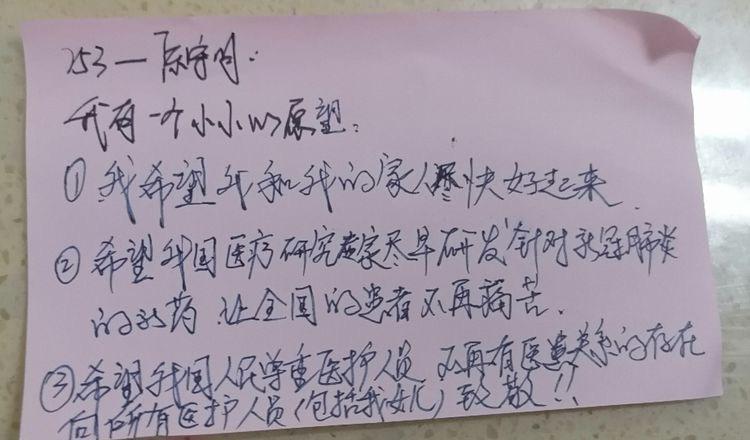 253—陈守明.
我有一个小小的原望:
①我希望我和我的家人尽快好起来.
②希望我国医疗研究专家尽早研发针对新冠肺炎
的新药,让全国的患者不再痛苦.
③希望我国人民尊重医护人员 不再有医患关系的存在
向所有医护人员(包括我女儿)致敬!!